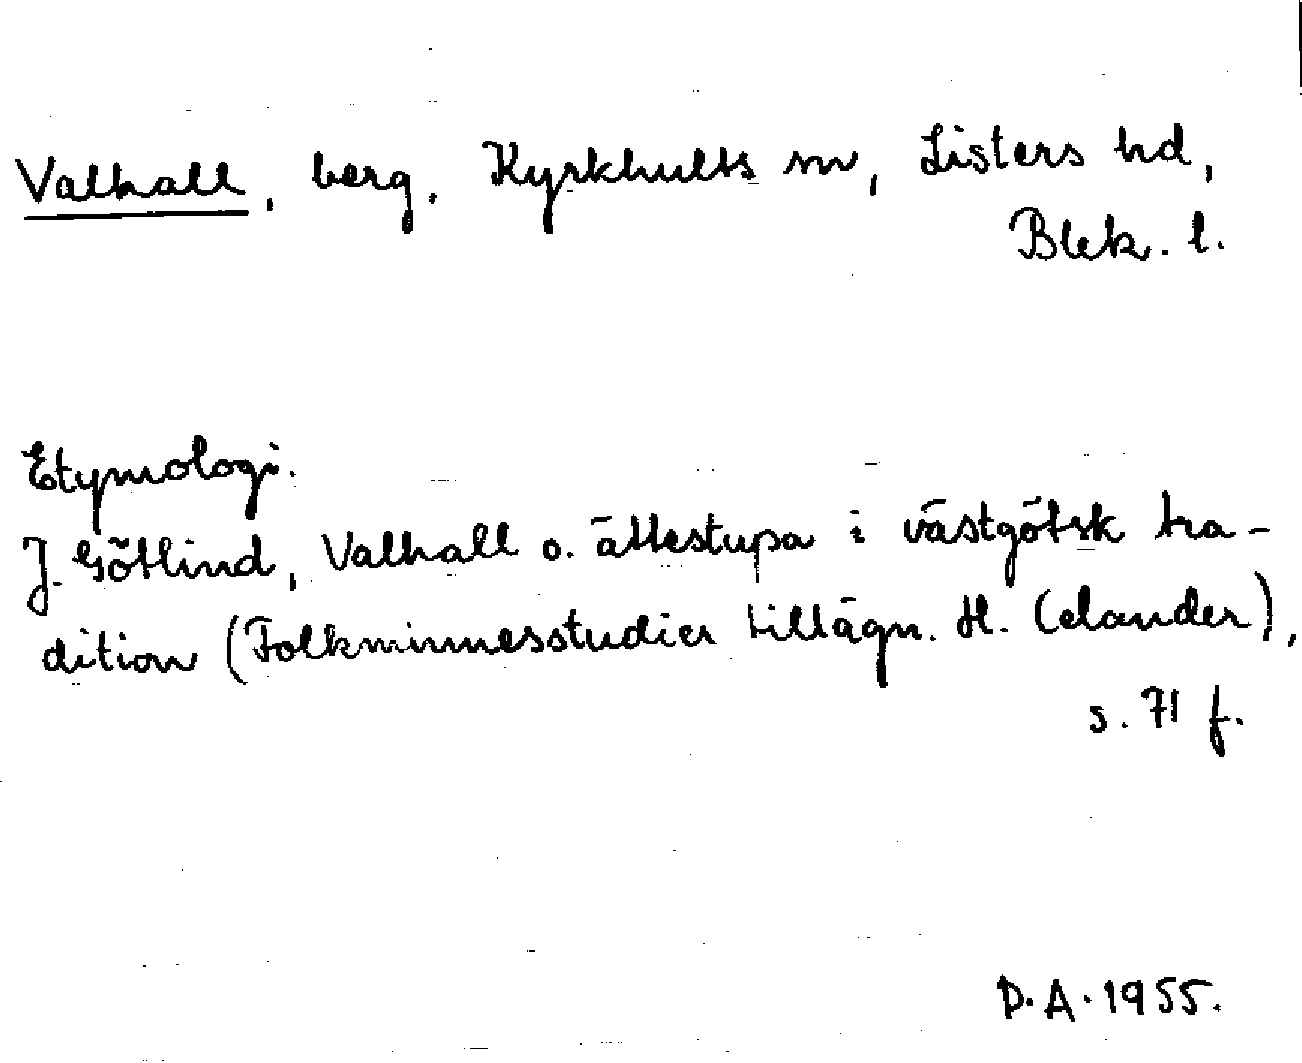 Valhall, berg, Kyrkhults sn, Listers hd,
Blek. l.
Etymologi.
J. Götlind, Valhall o. ättestupa i västgötsk tra-
dition (Folkminnesstudier tillägn. H. Celander),
s. 71 f.
D.A. 1955.